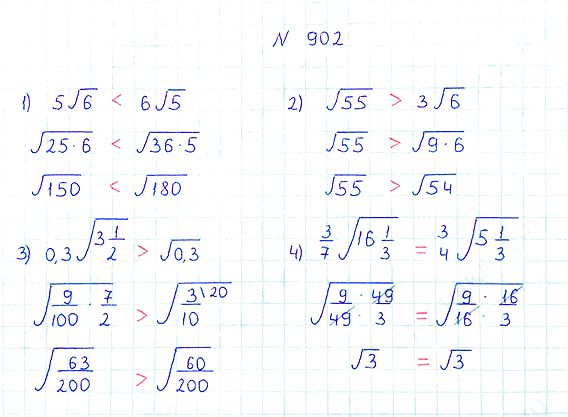 N 902
1) 5√6 < 6√5
√25·6 < √36·5
√150 < √180
2) √55 > 3√6
√55 > √9·6
√55 > √54
3) 0,3√3 1/2 > √0,3
√9/100 · 7/2 > √3\20/10
√63/200 > √60/200
4) 3/7 √16 1/3 = 3/4 √5 1/3
√9 · 49/49 · 3 = √9 · 16/16 · 3
√3 = √3